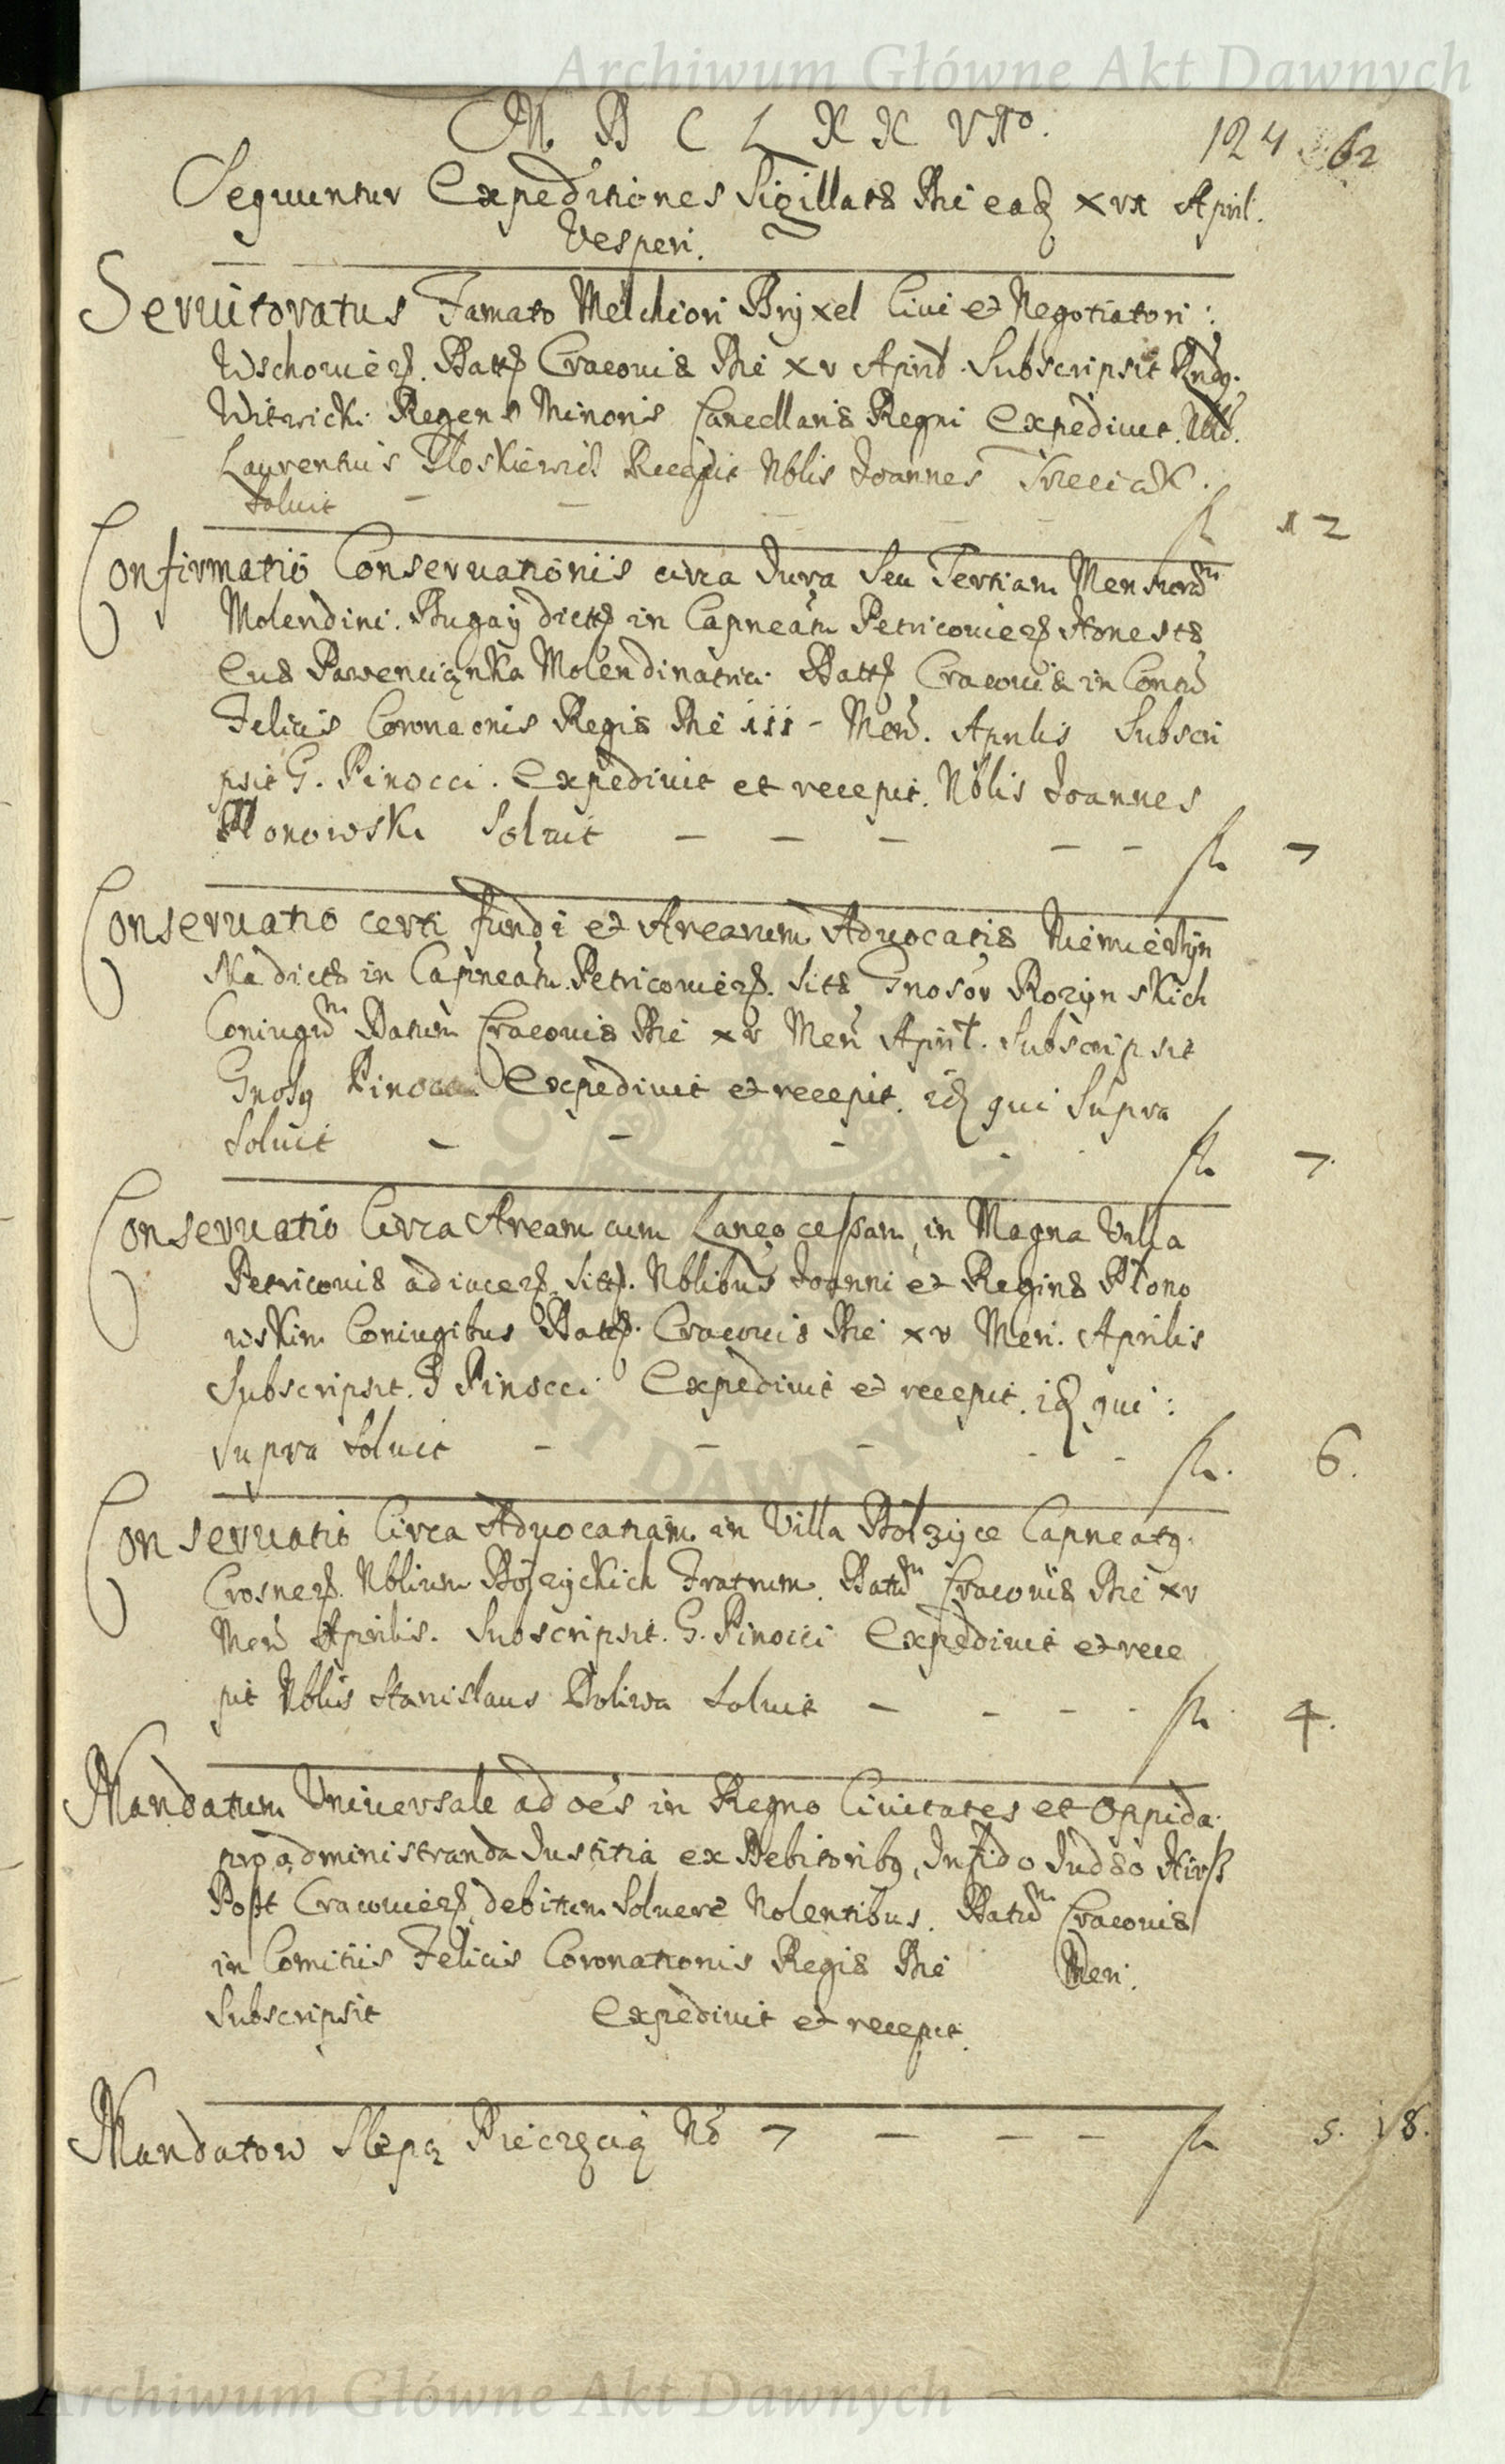 Archiwum Główne Akt Dawnych
M D C L X X VIto.
124 62
Sequuntur Expeditiones Sigillatæ Die eadem XVI April.
Vesperi.
Servitoratus Famato Melchiori Bryxel Civi et Negotiatori:
Wschovien. Datt Cracoviæ Die XV April. Subscripsit Rndus.
Witwicki Regens Minoris Cancellariæ Regni Expedivit. Nblis.
Laurentius Recepit Nblis Joannes Trzeciak.
Soluit - - - fl 12
Confirmatio Conservationis circa Jura Seu Tertiam Mensuram
Molendini Bugay dicti in Capneatu Petricovien Honestæ
Evæ Molendinatrici Datt Cracoviæ in Conventu
Felicis Coronaonis Regiæ Die iii - Men. Aprilis Subscri
psit G. Pinocci. Expedivit et recepit. Nblis Joannes
Płonowski Soluit - - - - - fl 7
Conservatio certi fundi et Arearum Advocatiæ
Ska dictæ in Capneatu Petricovien. Sitæ Gnosor Rozyn skich
Coniugum Datum Cracoviæ Die XV Men April. Subscripsit
Gnosus Pinocci Expedivit et recepit. idem qui Supra
Soluit - - - - fl 7.
Conservatio Circa Aream cum Laneo cessam in Magna Villa
Petricoviæ adiacen. Sitt. Nblibus Joanni et Reginæ Płono
wskim Coniugibus Datt. Cracoviæ Die XV Men. Aprilis
Subscripsit. G Pinocci Expedivit et recepit. idem qui:
Supra Soluit - - - - - fl. 6.
Conservatio Circa Advocatiam in Villa Capneatus.
Crosnen. Nblium Fratrum. Datum Cracoviæ Die XV
Men Aprilis. Subscripsit. G. Pinocci Expedivit et rece
pit Nblis Stanislaus Doliwa Soluit - - - - fl 4.
Mandatum Universale ad oes in Regno Civitates et Oppida.
pro administranda Justitia ex Debitoribus, Infido Judæo Hirsz
Popt Cracovien debitum Solvere Nolentibus. Datum Cracoviæ
in Comitiis Felicis Coronationis Regiæ Die Men.
Subscripsit Expedivit et recepit.
Mandatow Slepą Pieczęcią No 7 - - - fl 5. 18.
Archiwum Główne Akt Dawnych